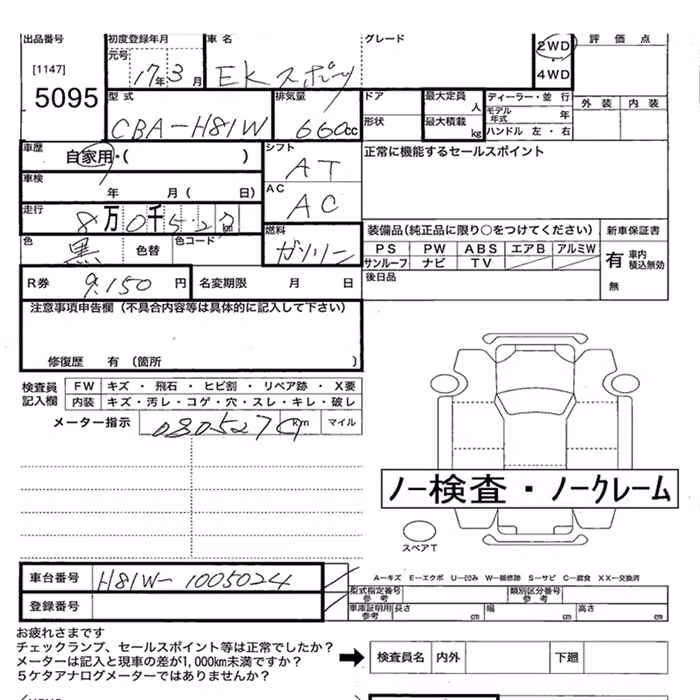 出品番号 初度登録年月 車名 グレード 2WD 評価点
元号
[1147] 17年3月 EKスポーツ 4WD
5095 型式 排気量 ドア 最大定員 人 ディーラー・並行 外装 内装
CBA-H81W 660cc 形状 最大積載 kg モデル年式 年
ハンドル 左・右
車歴 自家用・( ) シフト AT 正常に機能するセールスポイント
車検 年 月( 日) AC AC
走行 8万0千527km 装備品(純正品に限り○をつけてください) 新車保証書
色 黒 色替 色コード 燃料 ガソリン PS PW ABS エアB アルミW 有 車内積込無効
サンルーフ ナビ TV
R券 9,150円 名変期限 月 日 後日品 無
注意事項申告欄(不具合内容等は具体的に記入して下さい)
修復歴 有(箇所 )
検査員 FW キズ・飛石・ヒビ割・リペア跡・X要
記入欄 内装 キズ・汚レ・コゲ・穴・スレ・キレ・破レ
メーター指示 080527 Km マイル
ノー検査・ノークレーム
スペアT
車台番号 H81W-1005024
A-キズ E-エクボ U-凹み W-補修跡 S-サビ C-腐食 XX-交換済
登録番号 型式指定番号 参考 類別区分番号 参考
車庫証明用 参考 長さ cm 幅 cm 高さ cm
お疲れさまです
チェックランプ、セールスポイント等は正常でしたか?
メーターは記入と現車の差が1,000km未満ですか? 検査員名 内外 下廻
5ケタアナログメーターではありませんか?